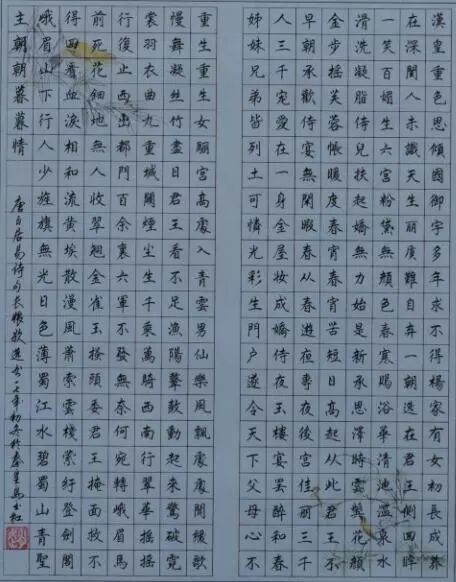 漢皇重色思傾國御宇多年求不得楊家有女初長成養
在深閨人未識天生麗質難自棄一朝選在君王側回眸
一笑百媚生六宮粉黛無顏色春寒賜浴華清池溫泉水
滑洗凝脂侍兒扶起嬌無力始是新承恩澤時雲鬢花顏
金步搖芙蓉帳暖度春宵春宵苦短日高起從此君王不
早朝承歡侍宴無閒暇春從春遊夜專夜後宮佳麗三千
人三千寵愛在一身金屋妝成嬌侍夜玉樓宴罷醉和春
姊妹兄弟皆列土可憐光彩生門戶遂令天下父母心不
重生重生女驪宮高處入青雲男仙樂風飄處處聞緩歌
慢舞凝絲竹盡日君王看不足漁陽鼙鼓動起來驚破霓
裳羽衣曲九重城闕煙塵生千乘萬騎西南行翠華搖搖
行復止西出都門百余裏六軍不發無奈何宛轉娥眉馬
前死花鈿地無人收翠翹金雀玉搔頭委君王掩面救不
得回看血淚相和流黃埃散漫風蕭索雲棧縈紆登劍閣
峨眉山下行人少旌旗無光日色薄蜀江水碧蜀山青聖
主朝朝暮暮情
唐白居易詩句長恨歌選 一七年初冬於秦皇島